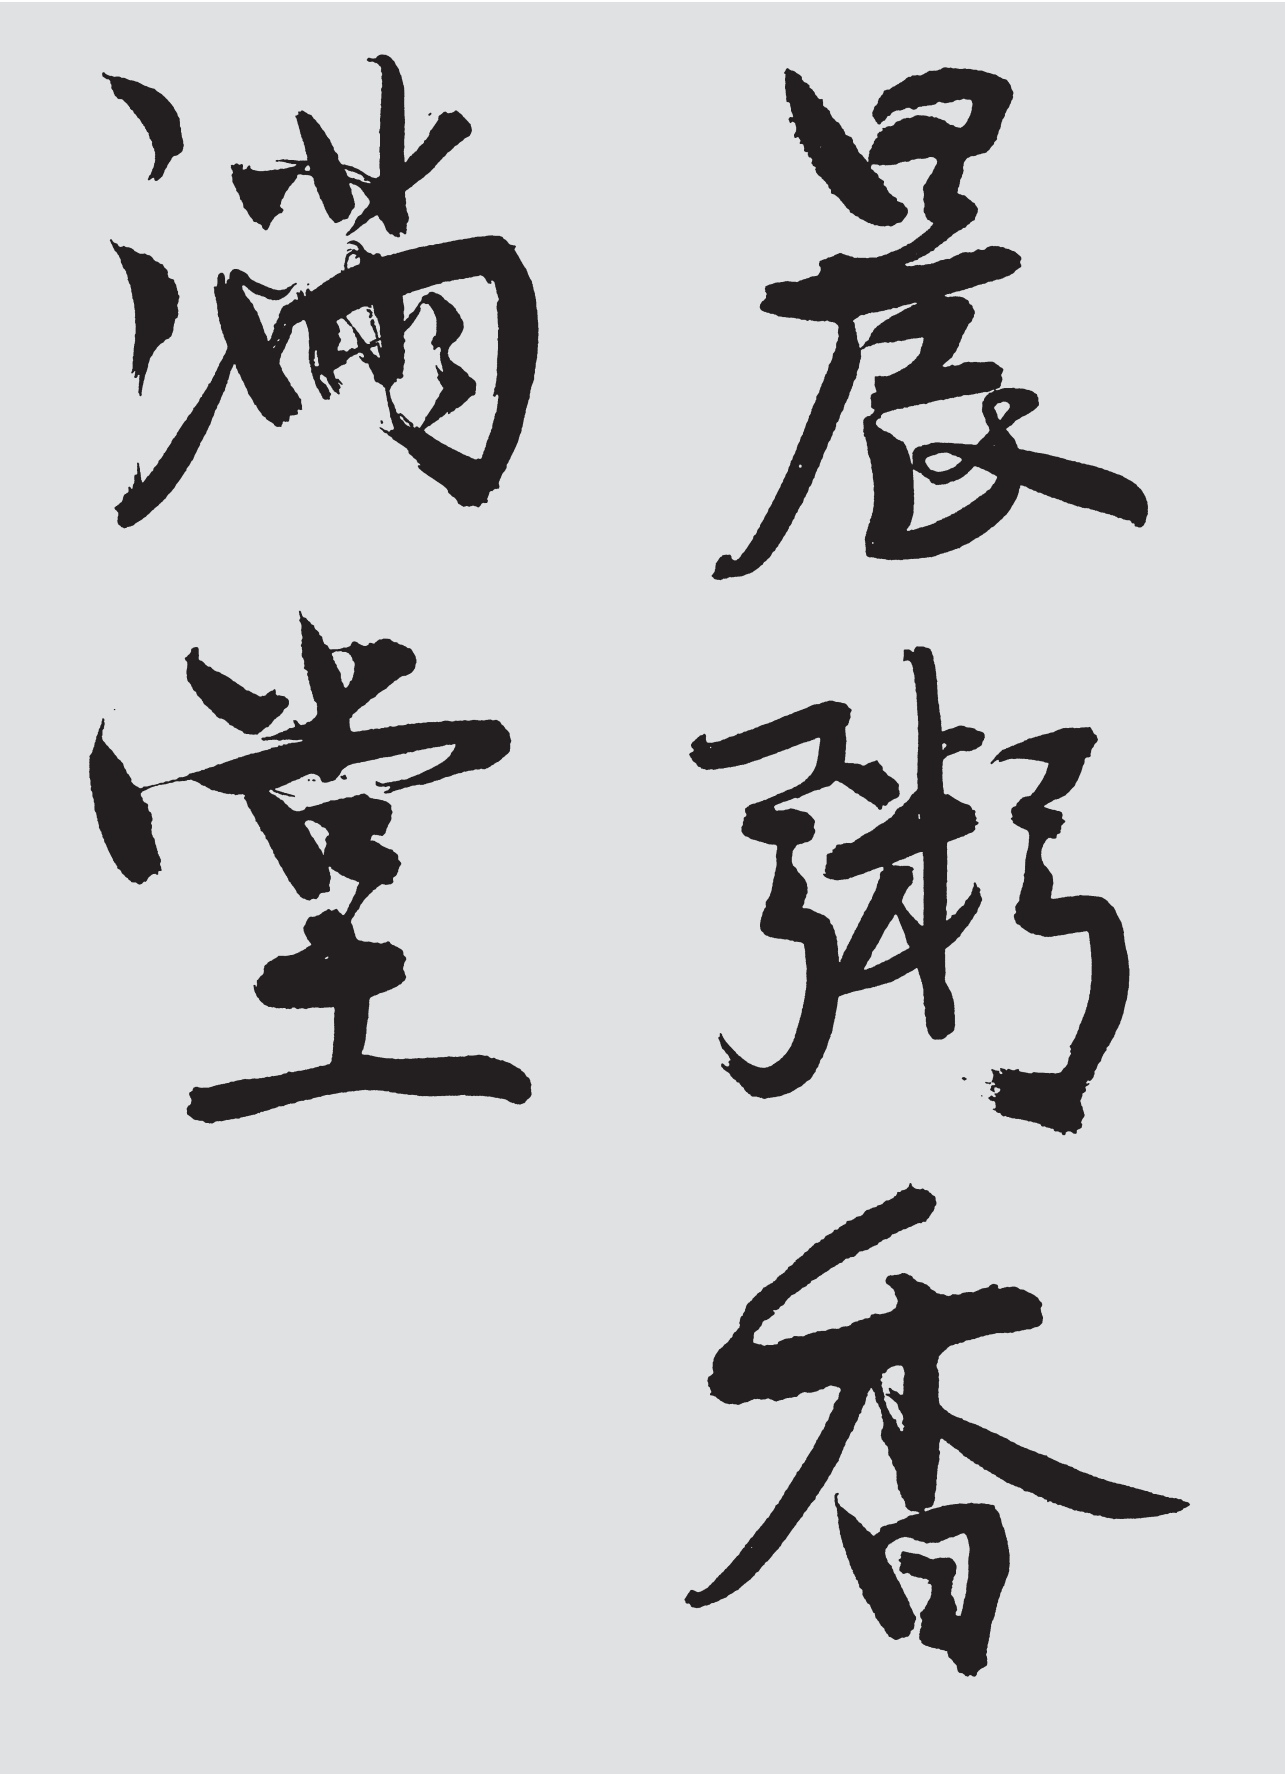 晨粥香
满堂